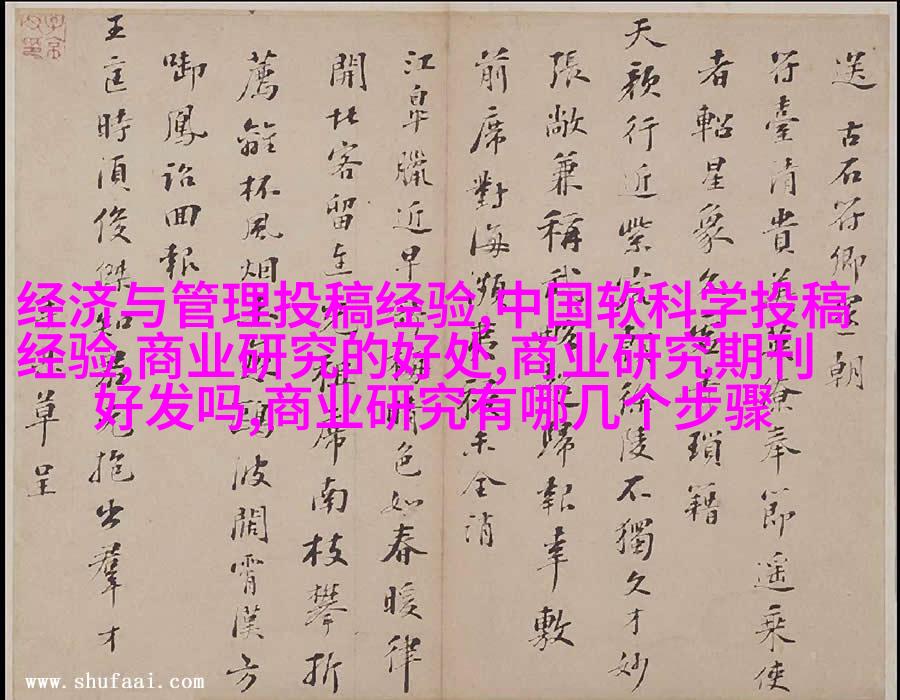 送古石符卿朝
符臺清貴奉節遥乘使
者軺星象瑣籍
天顏行近紫徐陵不獨久才妙
張敞兼稱武歸報幸敷
前席對海瀕書未全消
江皐臘近早梅晴色如春暖律
開北客留連祖席南枝攀折
薦離杯風烟頭波闊霄漢方
啣鳳詔回報
王時須俊傑知君抱出羣才
草呈
经济与管理投稿经验,中国软科学投稿
经验,商业研究的好处,商业研究期刊
好发吗,商业研究有哪几个步骤
www.shufaai.com